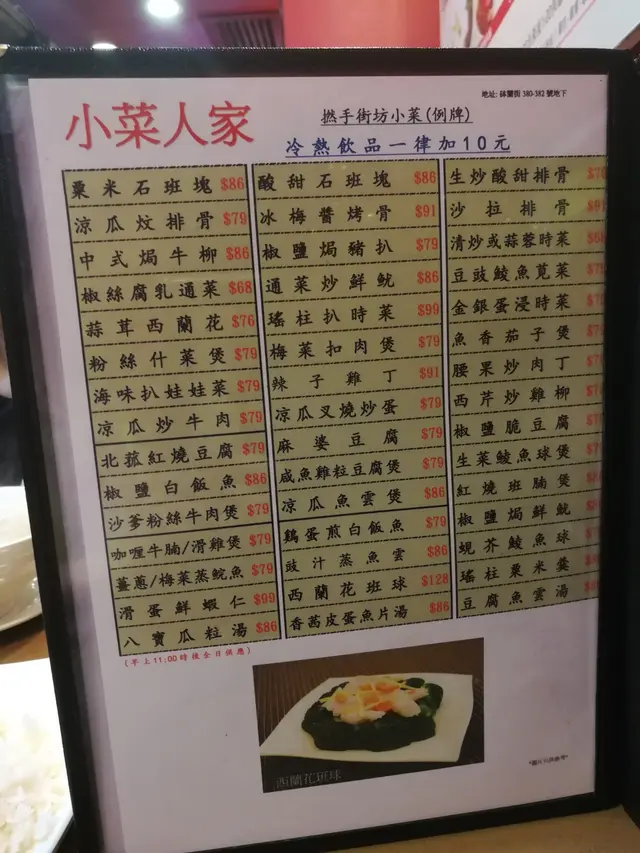 地址: 砵蘭街 380-382 號地下
小菜人家
撚手街坊小菜(例牌)
冷熱飲品一律加10元
粟米石班塊 $86
涼瓜炆排骨 $79
中式焗牛柳 $86
椒絲腐乳通菜 $68
蒜茸西蘭花 $76
粉絲什菜煲 $79
海味扒娃娃菜 $79
凉瓜炒牛肉 $79
北菰紅燒豆腐 $79
椒鹽白飯魚 $86
沙爹粉絲牛肉煲 $79
咖喱牛腩/滑雞煲 $79
薑蔥/梅菜蒸鯇魚 $79
滑蛋鮮蝦仁 $99
八寶瓜粒湯 $86
酸甜石班塊 $86
冰梅醬烤骨 $91
椒鹽焗豬扒 $79
通菜炒鮮魷 $86
瑤柱扒時菜 $99
梅菜扣肉煲 $79
辣子雞丁 $91
凉瓜叉燒炒蛋 $79
麻婆豆腐 $79
咸魚雞粒豆腐煲 $79
凉瓜魚雲煲 $86
鷄蛋煎白飯魚 $79
豉汁蒸魚雲 $86
西蘭花班球 $128
香茜皮蛋魚片湯 $86
生炒酸甜排骨
沙拉排骨
清炒或蒜蓉時菜
豆豉鯪魚莧菜
金銀蛋浸時菜
魚香茄子煲
腰果炒肉丁
西芹炒雞柳
椒鹽脆豆腐
生菜鯪魚球煲
紅燒班腩煲
椒鹽焗鮮魷
蜆芥鯪魚球
瑤柱粟米羹
豆腐魚雲湯
(早上11:00時後全日供應)
西蘭花班球